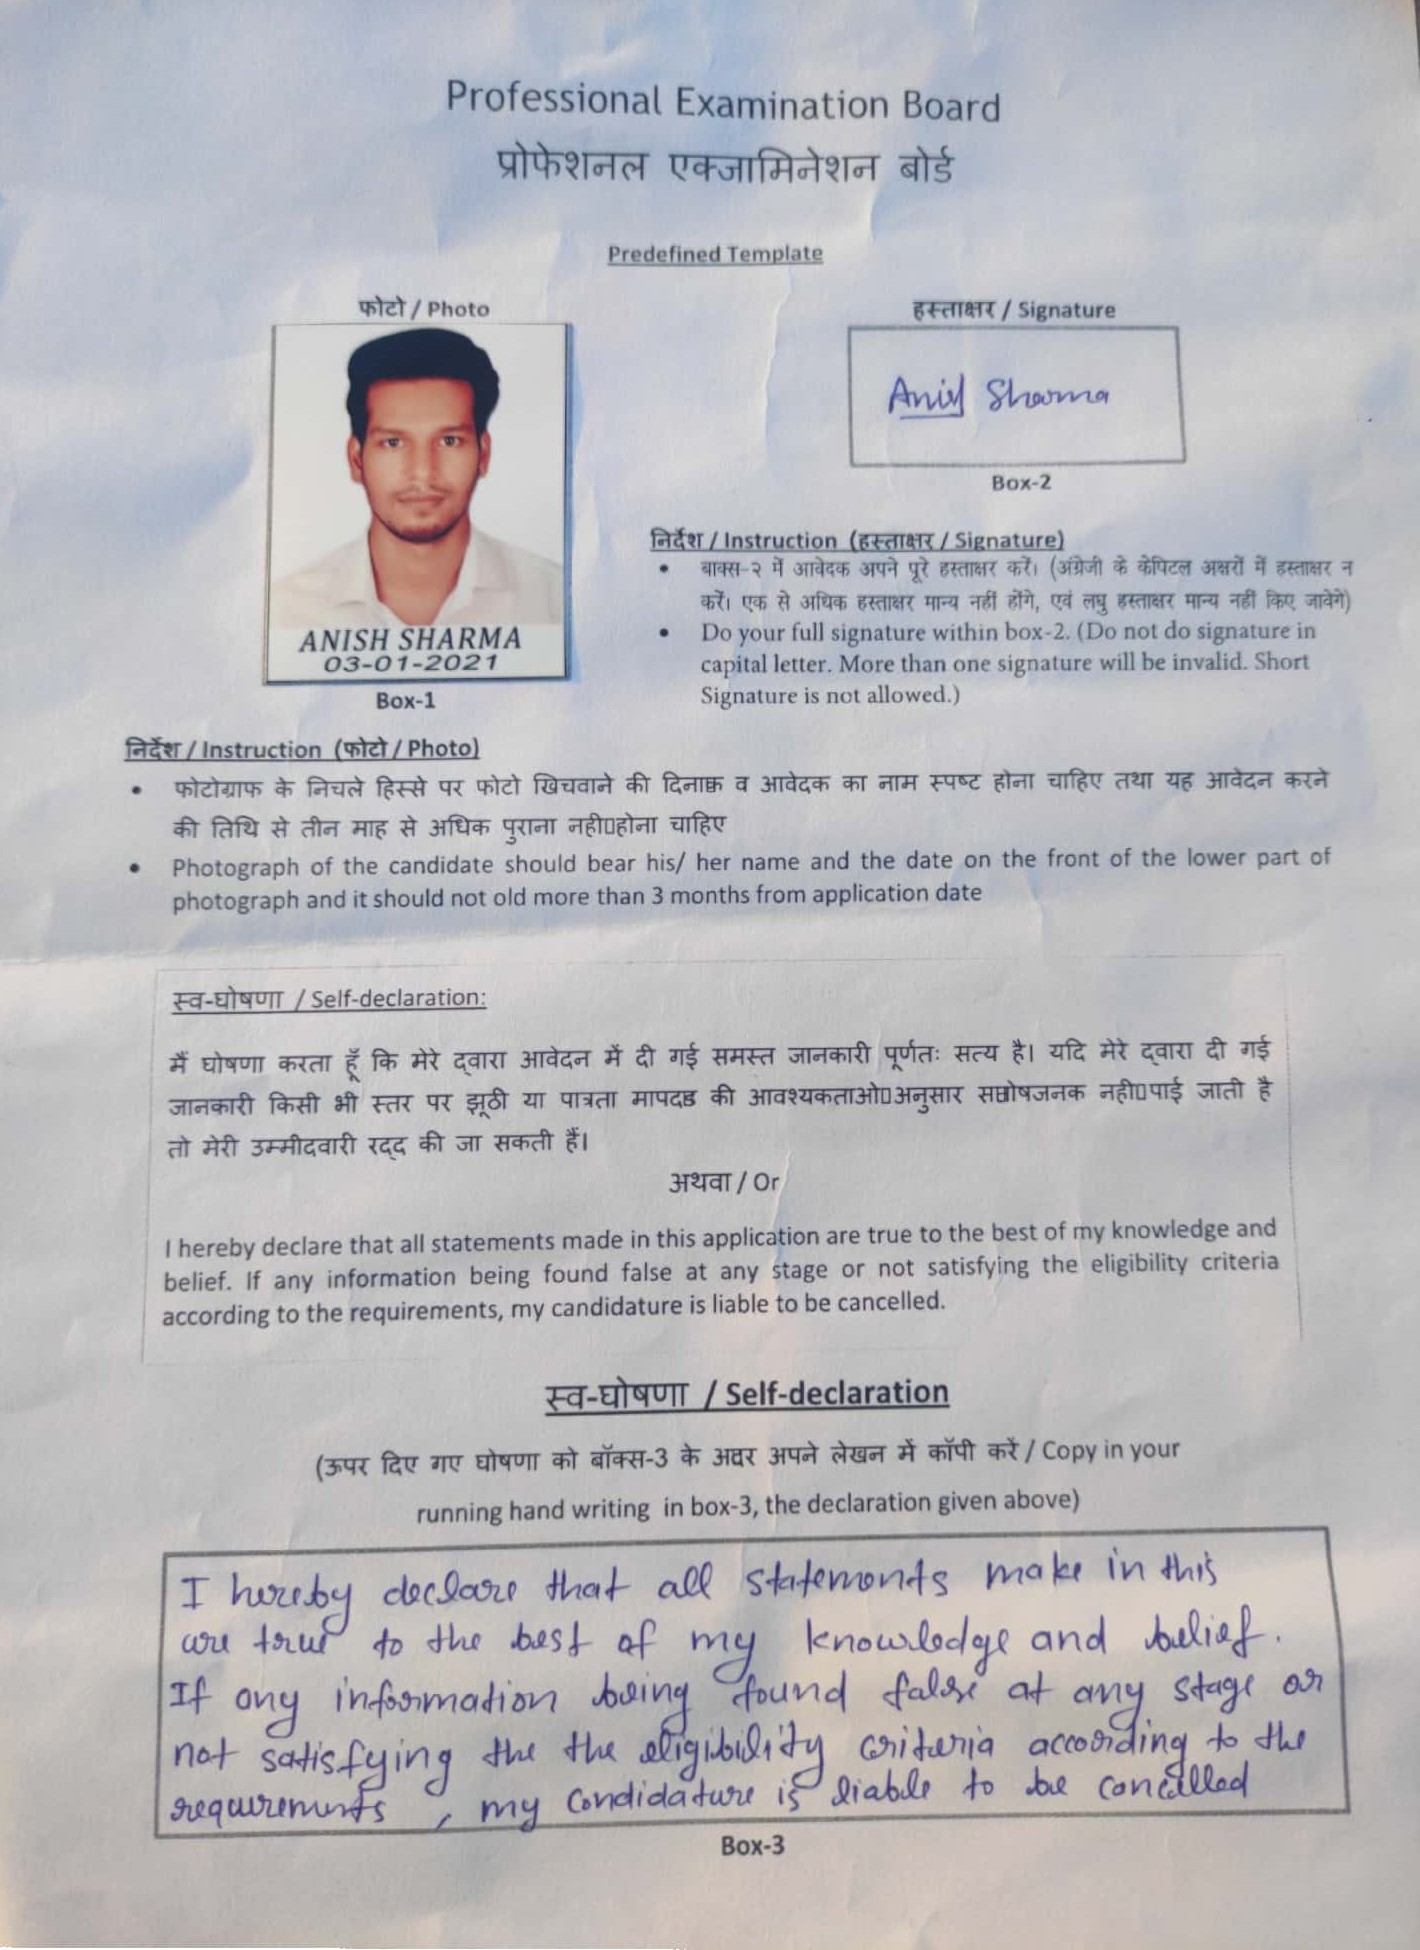 Professional Examination Board
प्रोफेशनल एक्जामिनेशन बोर्ड
Predefined Template
फोटो / Photo
ANISH SHARMA
03-01-2021
Box-1
हस्ताक्षर / Signature
Anish Sharma
Box-2
निर्देश / Instruction (हस्ताक्षर / Signature)
• बाक्स-२ में आवेदक अपने पूरे हस्ताक्षर करें। (अंग्रेजी के केपिटल अक्षरों में हस्ताक्षर न
करें। एक से अधिक हस्ताक्षर मान्य नहीं होंगे, एवं लघु हस्ताक्षर मान्य नहीं किए जावेगे)
• Do your full signature within box-2. (Do not do signature in
capital letter. More than one signature will be invalid. Short
Signature is not allowed.)
निर्देश / Instruction (फोटो / Photo)
• फोटोग्राफ के निचले हिस्से पर फोटो खिचवाने की दिनाक व आवेदक का नाम स्पष्ट होना चाहिए तथा यह आवेदन करने
की तिथि से तीन माह से अधिक पुराना नही▯होना चाहिए
• Photograph of the candidate should bear his/ her name and the date on the front of the lower part of
photograph and it should not old more than 3 months from application date
स्व-घोषणा / Self-declaration:
मैं घोषणा करता हूँ कि मेरे द्वारा आवेदन में दी गई समस्त जानकारी पूर्णतः सत्य है। यदि मेरे द्वारा दी गई
जानकारी किसी भी स्तर पर झूठी या पात्रता मापदड की आवश्यकताओ▯अनुसार सतोषजनक नही▯पाई जाती है
तो मेरी उम्मीदवारी रद्द की जा सकती हैं।
अथवा / Or
I hereby declare that all statements made in this application are true to the best of my knowledge and
belief. If any information being found false at any stage or not satisfying the eligibility criteria
according to the requirements, my candidature is liable to be cancelled.
स्व-घोषणा / Self-declaration
(ऊपर दिए गए घोषणा को बॉक्स-3 के अदर अपने लेखन में कॉपी करें / Copy in your
running hand writing in box-3, the declaration given above)
I hereby declare that all statements make in this
are true to the best of my knowledge and belief.
If any information being found false at any stage or
not satisfying the the eligibility criteria according to the
requirements , my condidature is liable to be concelled
Box-3